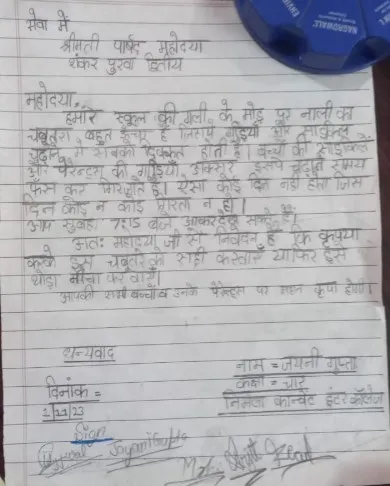 सेवा में
श्रीमती पार्षद महोदया
शंकर पुरवा द्वितीय
महोदया,
हमारे स्कूल की गली के मोड़ पर नाली का
चबूतरा बहुत ऊँचा है जिससे गाड़ियाँ और साइकिल
चढ़ाने में सबको दिक्कत होती है। बच्चों की साइकिलें
और पैरेन्ट्स की गाड़ियाँ अक्सर इसपे चढ़ाते समय
फँस कर गिर जाती है। ऐसा कोई दिन नही होता जिस
दिन कोई न कोई गिरता न हो।
आप सुबह 7:15 बजे आकर देख सकते हैं।
अतः महोदया जी से निवेदन है कि कृपया
करके इस चबूतरे को सही करवाएँ या फिर इसे
थोड़ा नीचा करवायें।
आपकी सभी बच्चों व उनके पैरेन्ट्स पर महान कृपा होगी।
धन्यवाद
नाम = जयनी गुप्ता
कक्षा = चार
दिनांक =
निर्मला कान्वेंट इंटर कॉलेज
1/11/23
Sign
NAGARDWALE